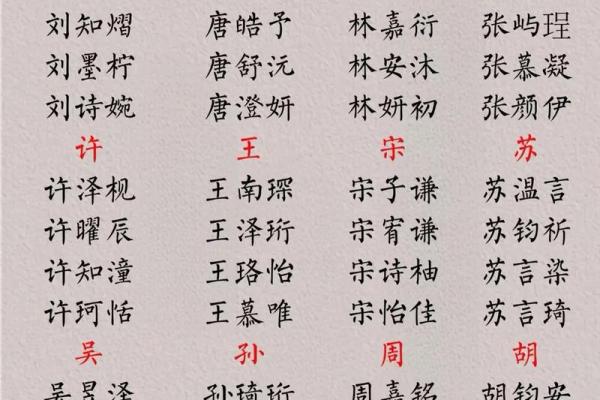 刘知熠 唐皓予 林嘉衍 张屿珵
刘墨柠 唐舒沅 林安沐 张慕凝
刘诗婉 唐澄妍 林妍初 张颜伊
许 王 宋 苏
许泽枧 王南琛 宋子谦 苏温言
许曜辰 王泽珩 宋宥谦 苏钧祈
许知潼 王珞怡 宋诗柚 苏言染
许珂恬 王慕唯 宋怡佳 苏言琦
吴 孙 周 胡
吴昱泽 孙琦珩 周嘉铭 胡钧安